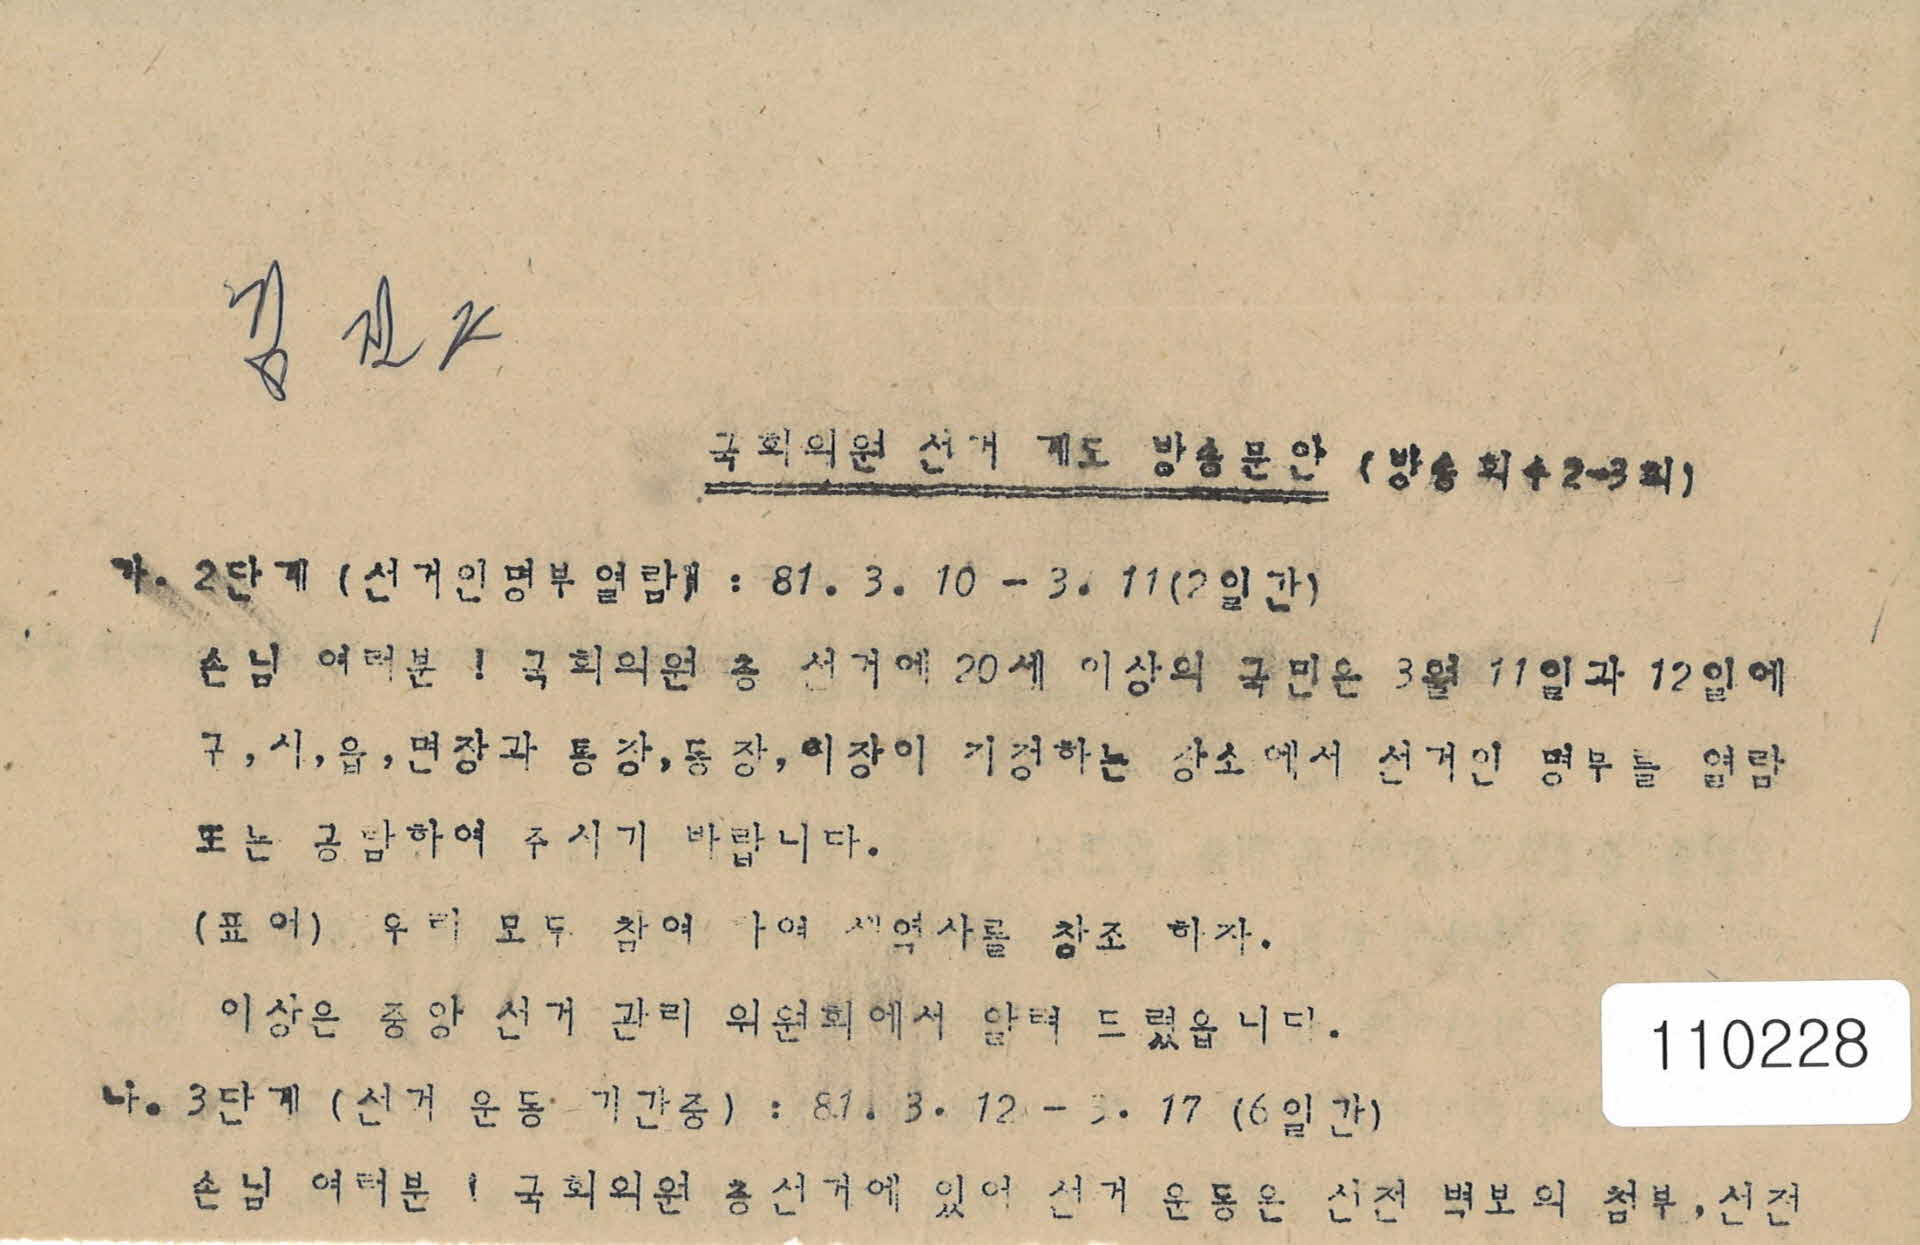 김
국회의원 선거 계도 방송문안 (방송회수2-3회)
가. 2단계 (선거인명부열람) : 81. 3. 10 - 3. 11(2일간)
손님 여러분 ! 국회의원 총 선거에 20세 이상의 국민은 3월 11일과 12일에
구,시,읍,면장과 통장,동장,이장이 지정하는 장소에서 선거인 명부를 열람
또는 공람하여 주시기 바랍니다.
(표어) 우리 모두 참여 하여 새역사를 창조 하자.
이상은 중앙 선거 관리 위원회에서 알려 드렸읍니다.
110228
나. 3단계 (선거 운동 기간중) : 81. 3. 12 - 3. 17 (6일간)
손님 여러분 ! 국회의원 총선거에 있어 선거 운동은 선전 벽보의 첨부,선전